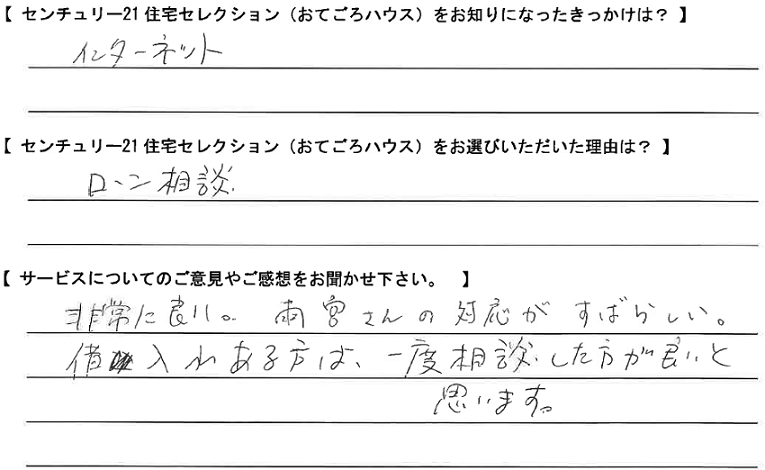 【 センチュリー21 住宅セレクション（おてごろハウス）をお知りになったきっかけは？ 】
インターネット
【 センチュリー21 住宅セレクション（おてごろハウス）をお選びいただいた理由は？ 】
ローン相談
【 サービスについてのご意見やご感想をお聞かせ下さい。 】
非常に良い。 雨宮さんの対応がすばらしい。
借入れある方は、一度相談した方が良いと
思います。